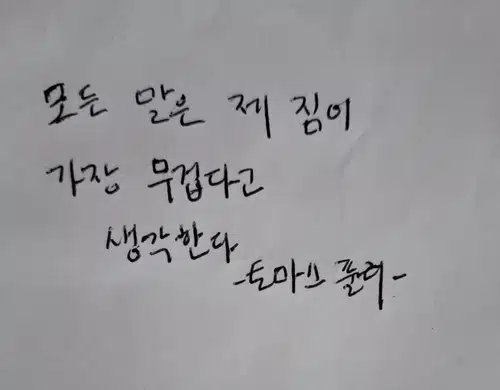 모든 말은 제 짐이
가장 무겁다고
생각한다
-토마스 풀러-